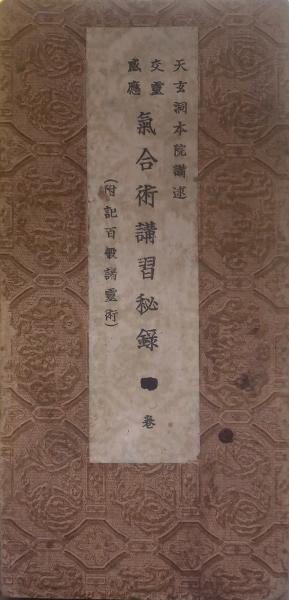 天玄洞本院講述
交靈
感應
氣合術講習秘錄
卷
(附記百般諸靈術)